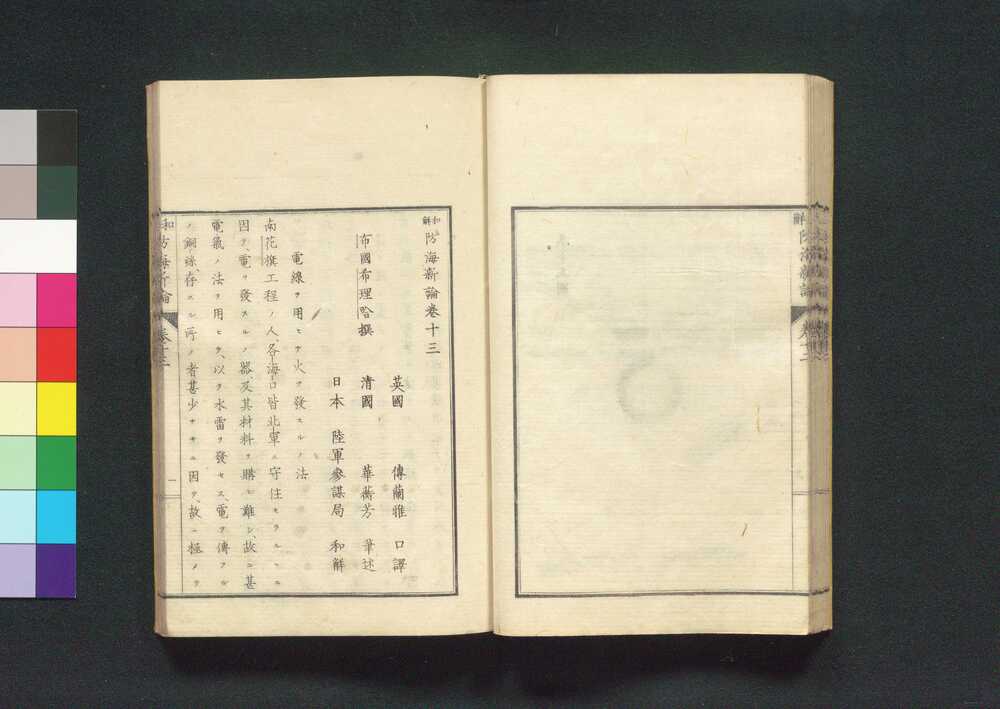 解防海新論 卷十三
和解防海新論卷十三
英國 傅蘭雅 口譯
布國希理哈撰 清國 華蘅芳 筆述
日本 陸軍參謀局 和解
電線ヲ用ヒテ火ヲ發スルノ法
南花旗工程ノ人、各海口皆北軍ニ守住セラルヽニ
因テ、電ヲ發スルノ器及其材料ヲ購ヒ難シ、故ニ甚
電氣ノ法ヲ用ヒテ、以テ水雷ヲ發セス、電ヲ傳フル
ノ銅絲、存スル所ノ者甚少ナキニ因テ、故ニ極メテ
和解防海新論 卷十三 一